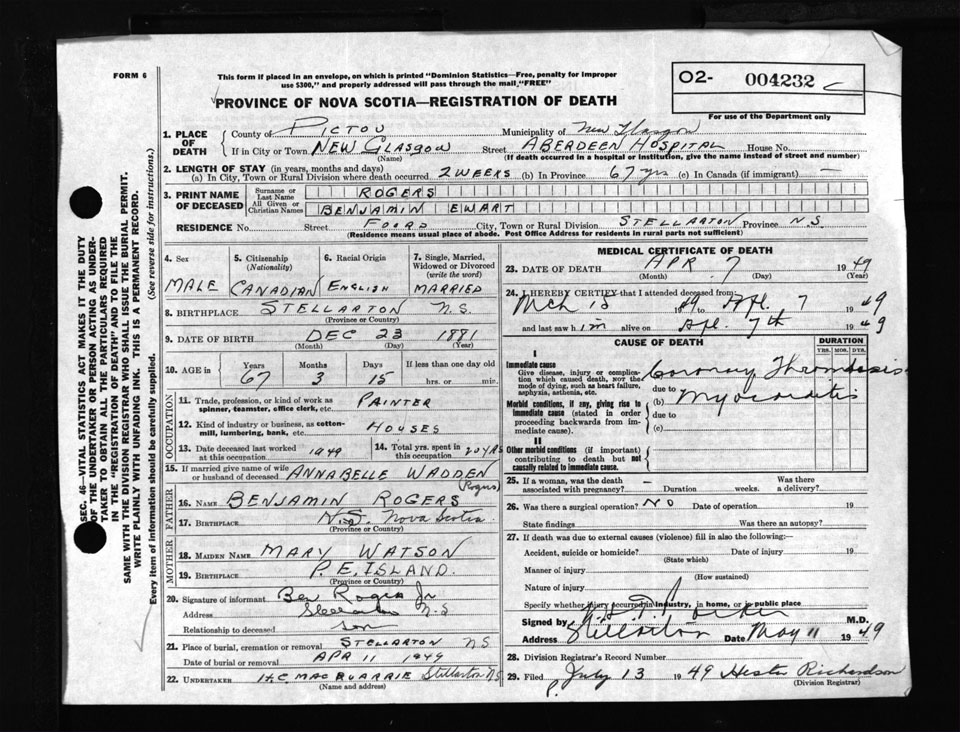 FORM 6
This form if placed in an envelope, on which is printed "Dominion Statistics—Free, penalty for improper
use $300," and properly addressed will pass through the mail, "FREE"
O2- 004232
For use of the Department only
PROVINCE OF NOVA SCOTIA—REGISTRATION OF DEATH
SEC. 46—VITAL STATISTICS ACT MAKES IT THE DUTY
OF THE UNDERTAKER OR PERSON ACTING AS UNDER-
TAKER TO OBTAIN ALL THE PARTICULARS REQUIRED
IN THE "REGISTRATION OF DEATH" AND TO FILE THE
SAME WITH THE DIVISION REGISTRAR WHO SHALL ISSUE THE BURIAL PERMIT.
WRITE PLAINLY WITH UNFADING INK. THIS IS A PERMANENT RECORD.
Every item of information should be carefully supplied. (See reverse side for instructions.)
1. PLACE OF DEATH
County of PICTOU Municipality of New Glasgow
If in City or Town NEW GLASGOW Street ABERDEEN HOSPITAL House No.
(Name) (If death occurred in a hospital or institution, give the name instead of street and number)
2. LENGTH OF STAY (in years, months and days)
(a) In City, Town or Rural Division where death occurred 2 WEEKS (b) In Province 67 yrs (c) In Canada (if immigrant) —
3. PRINT NAME OF DECEASED
Surname or Last Name ROGERS
All Given or Christian Names BENJAMIN EWART
RESIDENCE No. Street FOORD City, Town or Rural Division STELLARTON Province N.S.
(Residence means usual place of abode. Post Office Address for residents in rural parts not sufficient)
4. Sex 5. Citizenship (Nationality) 6. Racial Origin 7. Single, Married, Widowed or Divorced (write the word)
MALE CANADIAN ENGLISH MARRIED
8. BIRTHPLACE STELLARTON N.S.
(Province or Country)
9. DATE OF BIRTH DEC 23 1881
(Month) (Day) (Year)
10. AGE in Years Months Days If less than one day old
67 3 15 hrs. or min.
OCCUPATION
11. Trade, profession, or kind of work as spinner, teamster, office clerk, etc. PAINTER
12. Kind of industry or business, as cotton-mill, lumbering, bank, etc. HOUSES
13. Date deceased last worked at this occupation 1949 14. Total yrs. spent in this occupation 20 YRS
15. If married give name of wife or husband of deceased ANNABELLE WADDEN (Rogers)
FATHER
16. Name BENJAMIN ROGERS
17. BIRTHPLACE N.S. Nova Scotia
(Province or Country)
MOTHER
18. MAIDEN NAME MARY WATSON
19. BIRTHPLACE P.E. ISLAND.
(Province or Country)
20. Signature of informant Ben Rogers Jr
Address Stellarton N.S
Relationship to deceased son
21. Place of burial, cremation or removal STELLARTON NS
Date of burial or removal APR 11 1949
22. UNDERTAKER H.C MACQUARRIE Stellarton N.S
(Name and address)
MEDICAL CERTIFICATE OF DEATH
23. DATE OF DEATH APR. 7 1949
(Month) (Day)
24. I HEREBY CERTIFY that I attended deceased from:
Mch 15 1949 Apl. 7 1949
and last saw him alive on Apl. 7th 1949
CAUSE OF DEATH
DURATION
YRS. MOS. DYS.
I
Immediate cause
Give disease, injury or complication which caused death, NOT the mode of dying, such as heart failure, asphyxia, asthenia, etc.
Coronary Thrombosis
due to
Morbid conditions, if any, giving rise to immediate cause (stated in order proceeding backwards from immediate cause).
(b) Myocarditis
due to
(c)
II
Other morbid conditions (if important) contributing to death but not causally related to immediate cause.
25. If a woman, was the death associated with pregnancy? — Duration weeks. Was there a delivery?
26. Was there a surgical operation? NO Date of operation 19
State findings Was there an autopsy?
27. If death was due to external causes (violence) fill in also the following:—
Accident, suicide or homicide? Date of injury 19
(State which)
Manner of injury
(How sustained)
Nature of injury
Specify whether injury occurred in industry, in home, or in public place
Signed by M.D.
Address Stellarton Date May 11 1949
28. Division Registrar's Record Number
29. Filed July 13 1949 Hester Richardson
P. (Division Registrar)